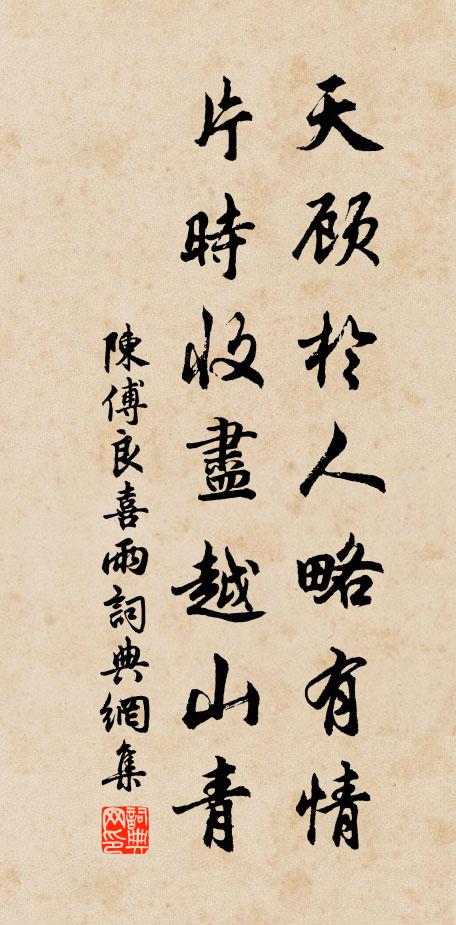 天顾於人略有情
片時收盡越山青
陳傅良喜雨詞典網集
詞典网印